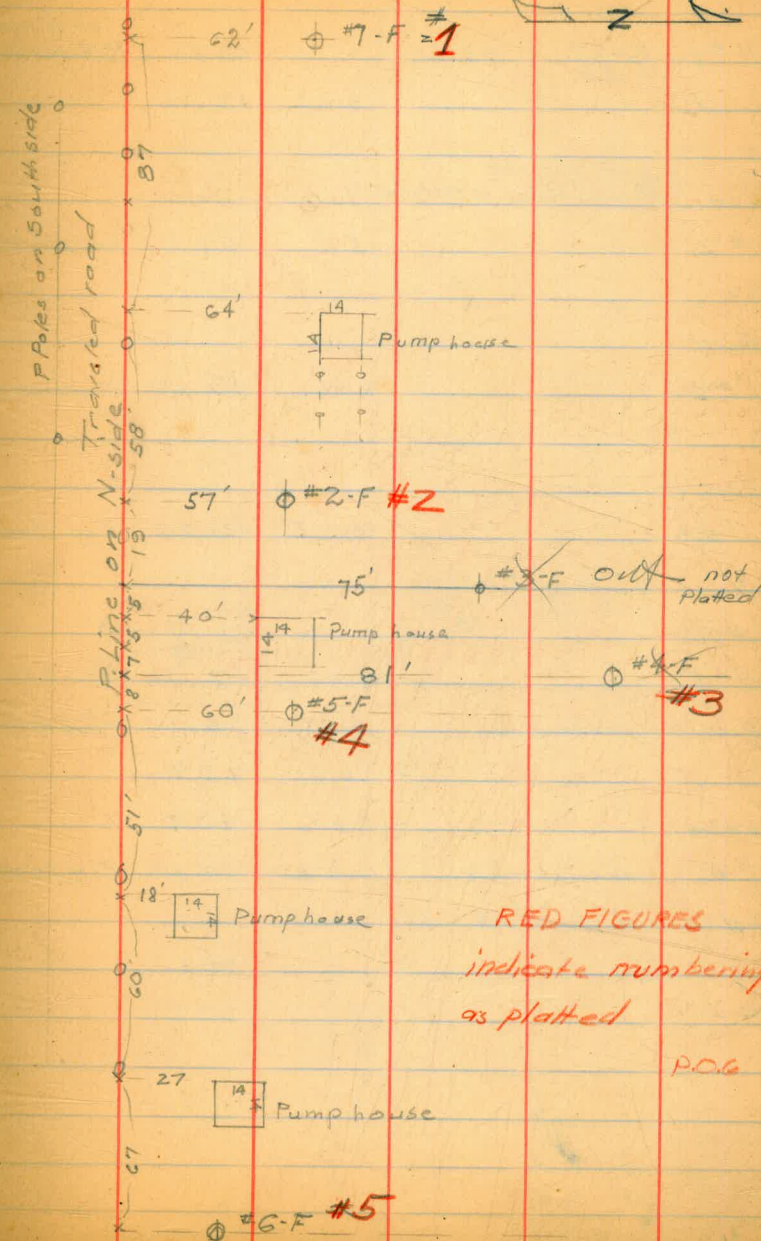 N
62' #7-F = #1
P Poles on South side
Traveled road
P. Line on N-side
87
64' 14
14 Pump house
58'
57' #2-F #2
19
75' #3-F out not
Platted
5
40' 14 Pump house
14
5
7
81' #4-F
#3
8
60' #5-F
#4
51'
18' 14
14 Pump house
RED FIGURES
indicate numbering
as platted
60'
P.O.G
27 14
14 Pump house
67
#6-F #5